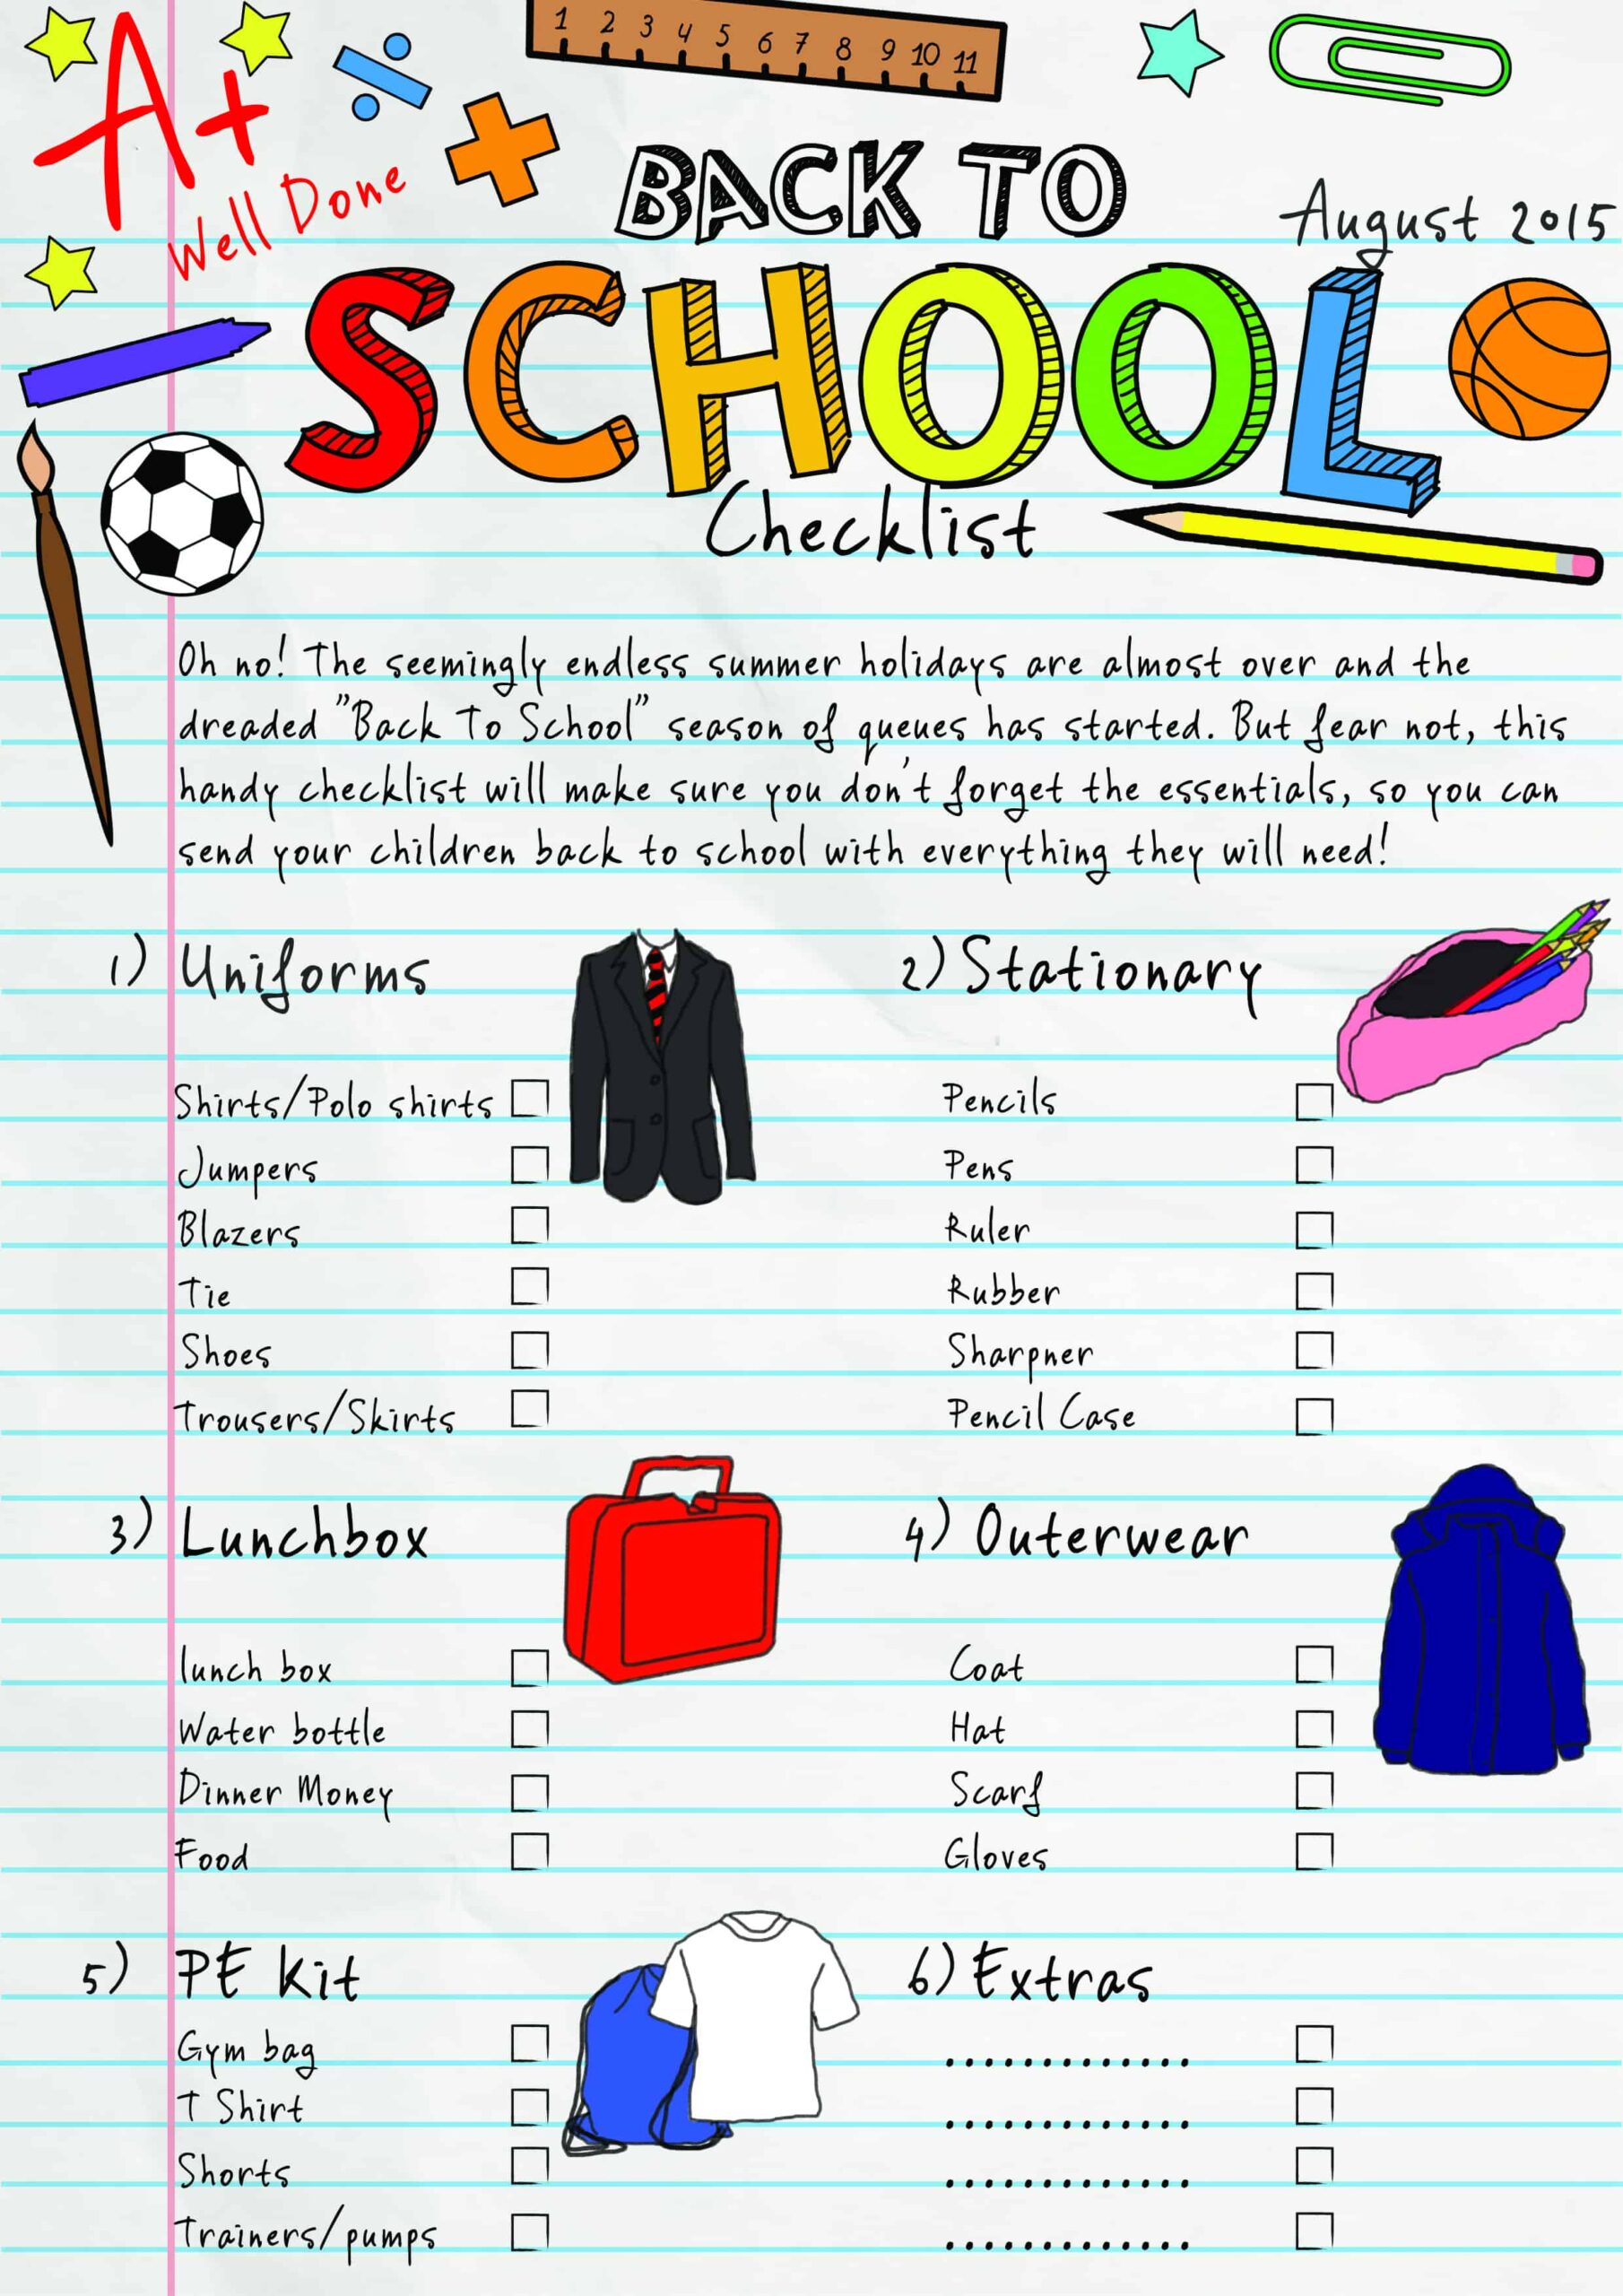 1 2 3 4 5 6 7 8 9 10 11
A+
Well Done
BACK TO
August 2015
SCHOOL
Checklist
Oh no! The seemingly endless summer holidays are almost over and the
dreaded "Back To School" season of queues has started. But fear not, this
handy checklist will make sure you don't forget the essentials, so you can
send your children back to school with everything they will need!
1) Uniforms
Shirts/Polo shirts
Jumpers
Blazers
Tie
Shoes
Trousers/Skirts
2) Stationary
Pencils
Pens
Ruler
Rubber
Sharpner
Pencil Case
3) Lunchbox
lunch box
Water bottle
Dinner Money
Food
4) Outerwear
Coat
Hat
Scarf
Gloves
5) PE Kit
Gym bag
T Shirt
Shorts
Trainers/pumps
6) Extras
.............
.............
.............
.............